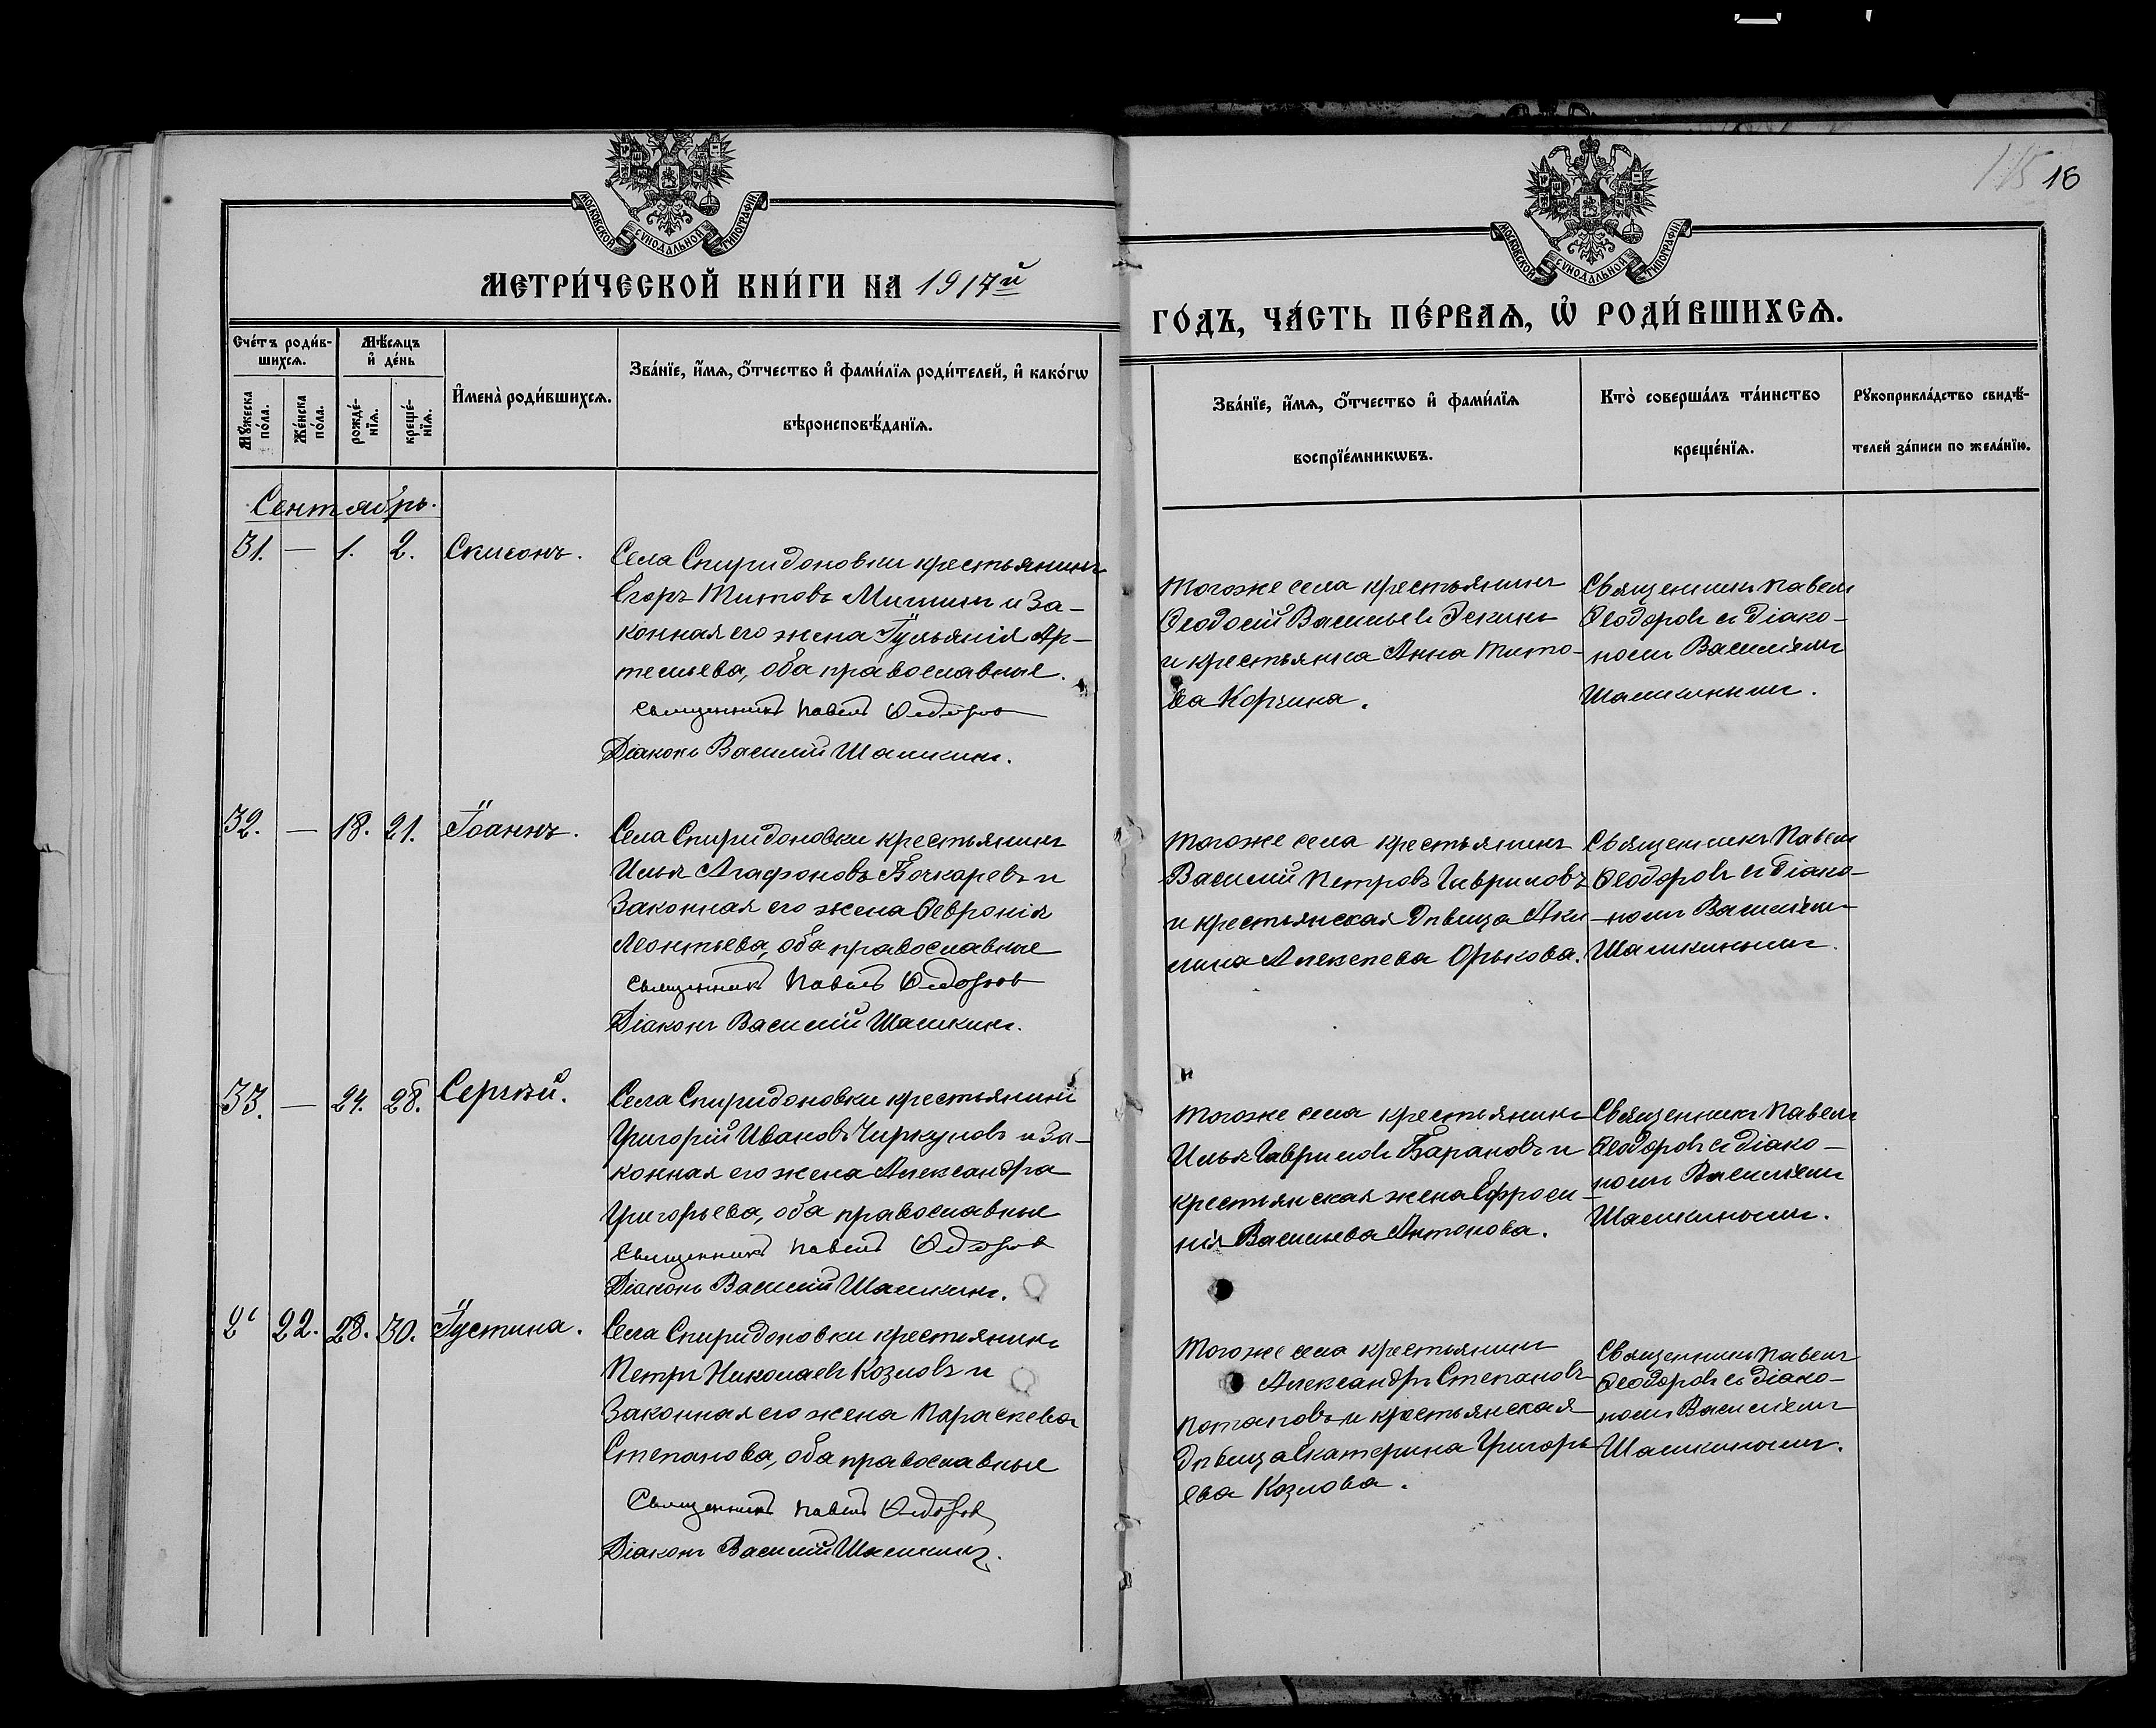 115 16
МОСКОВСКОЙ СѴНОДАЛЬНОЙ ТИПОГРАФІИ
МОСКОВСКОЙ СѴНОДАЛЬНОЙ ТИПОГРАФІИ
МЕТРИ́ЧЕСКОЙ КНИ́ГИ НА 1917й
ГО́ДЪ, ЧА́СТЬ ПЕ́РВАѦ, Ѡ҆ РОДИ́ВШИХСѦ.
Счє́тъ роди́в-
шихсѧ.
Мꙋ́жеска
по́ла.
Же́нска
по́ла.
Мѣ́сѧцъ
и҆ де́нь
рожде́-
нїѧ.
креще́-
нїѧ.
И҆мена̀ роди́вшихсѧ.
Зва́нїе, и҆́мѧ, ѻ҆́тчество и҆ фами́лїѧ роди́телей, и҆ како́гѡ
вѣроисповѣ́данїѧ.
Зва́нїе, и҆́мѧ, ѻ҆́тчество и҆ фами́лїѧ
воспрїе́мникѡвъ.
Кто̀ соверша́лъ та́инство
креще́нїѧ.
Рꙋкоприкла́дство свидѣ́-
телей за́писи по жела́нїю.
Сентябрь.
31. — 1. 2.
Села Спиридоновки крестьянинъ
Егоръ Титовъ Мишин и за-
конная его жена Іульянія Ар-
темьева, оба православные.
Священникъ Павелъ Ѳедоров
Діаконъ Василій Шашкин.
Тогоже села крестьянинъ
Ѳеодосій Васильев
и крестьянка Анна Тито-
ва Корчина.
Священникъ Павелъ
Ѳеодоровъ съ діако-
номъ Василіемъ
Шашкинымъ.
32. — 18. 21. Іоаннъ.
Села Спиридоновки крестьянинъ
Илья Агафоновъ Бочкаревъ и
законная его жена Ѳевронія
Леонтьева, оба православные
Священникъ Павелъ Ѳедоров
Діаконъ Василій Шашкин.
Тогоже села крестьянинъ
Василій Петровъ Гавриловъ
и крестьянская дѣвица Аки-
лина Алексеева Орькова.
Священникъ Павелъ
Ѳеодоровъ съ діако-
номъ Василіем
Шашкинымъ.
33. — 24. 28. Сергѣй.
Села Спиридоновки крестьянинъ
Григорій Ивановъ Чиркуновъ и за-
конная его жена Александра
Григорьева, оба православные
Священникъ Павелъ Ѳедоров
Діаконъ Василій Шашкин.
Тогоже села крестьянинъ
Илья Гавриловъ Барановъ и
крестьянская жена Ефроси-
нія Васильева Антонова.
Священникъ Павелъ
Ѳеодоровъ съ діако-
номъ Василіемъ
Шашкинымъ.
22. 28. 30. Іустина.
Села Спиридоновки крестьянинъ
Петръ Николаевъ Козловъ и
законная его жена Параскева
Степанова, оба православные
Священникъ Павелъ Ѳедоров
Діаконъ Василій Шашкин.
Тогоже села крестьянинъ
Александръ Степановъ
Потаповъ и крестьянская
дѣвица Екатерина Григорь-
ева Козлова.
Священникъ Павелъ
Ѳеодоровъ съ діако-
номъ Василіемъ
Шашкинымъ.